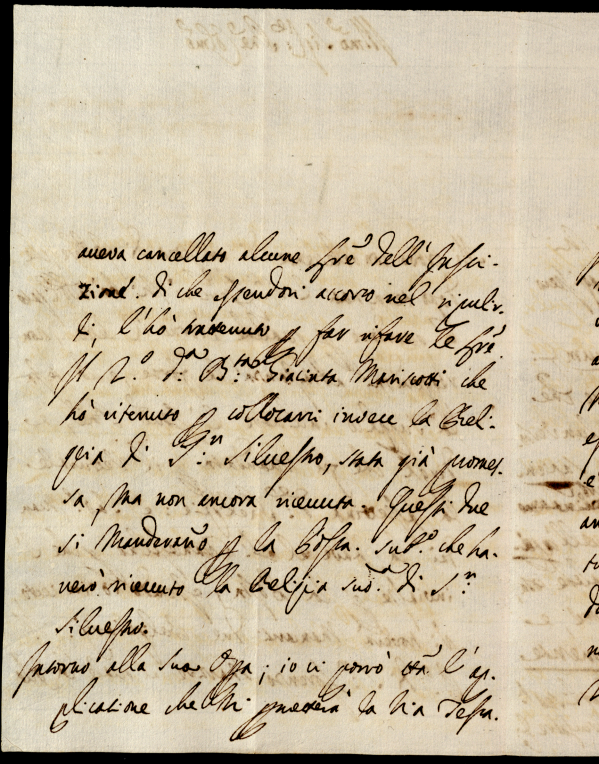 aueva cancellato alcune lrẽ dell' Inscri-
zione. di che essendosi accorto nel ripulir-
ti, l'hò trattenuto p far rifare le lrẽ.
Il 2.º d.ª B.ta Giacinta Mariscotti che
hò ritenuto p collocarvi invece la Reli-
quia di S.n Silvestro, stata già promes-
sa, ma non ancora ricevuta. Questi due
si Manderaño p la Posta. sub.º che ha-
verò ricevuto la Reliqia sud.ª di S.n
Silvestro.
Intorno alla sua Opa; io vi porrò tta l'ap-
plicatione che Mi permetterà la Mia Testa.